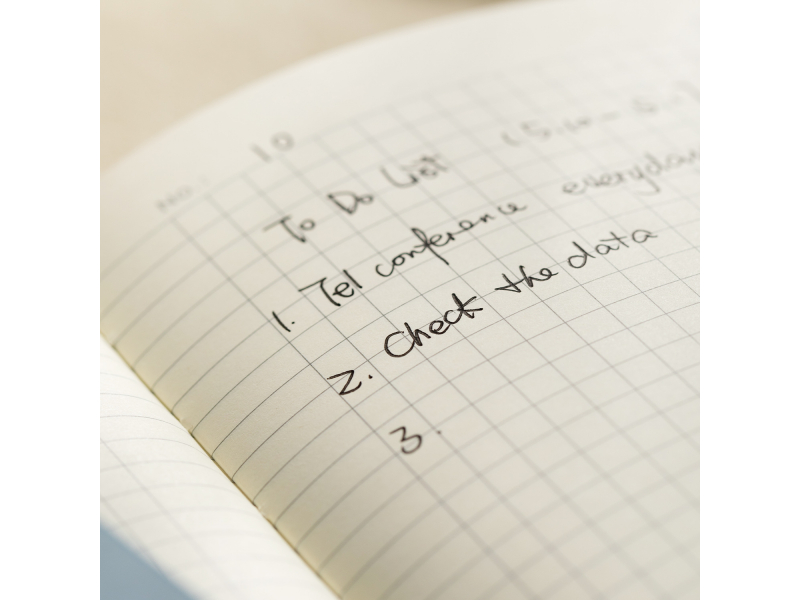 NO.
10
To Do List
1. Tel conference everyday
2. Check the data
3.